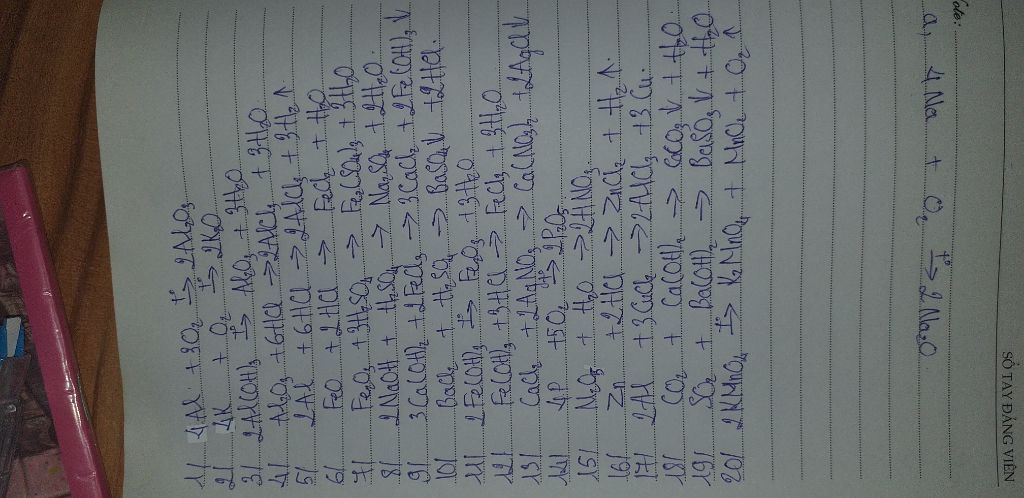 1/ 4Al + 3O₂ t°→ 2Al₂O₃
2/ 4K + O₂ t°→ 2K₂O
3/ 2Al(OH)₃ t°→ Al₂O₃ + 3H₂O
4/ Al₂O₃ + 6HCl → 2AlCl₃ + 3H₂O
5/ 2Al + 6HCl → 2AlCl₃ + 3H₂↑
6/ FeO + 2HCl → FeCl₂ + H₂O
7/ Fe₂O₃ + 3H₂SO₄ → Fe₂(SO₄)₃ + 3H₂O
8/ 2NaOH + H₂SO₄ → Na₂SO₄ + 2H₂O.
9/ 3Ca(OH)₂ + 2FeCl₃ → 3CaCl₂ + 2Fe(OH)₃↓
10/ BaCl₂ + H₂SO₄ → BaSO₄↓ + 2HCl.
11/ 2Fe(OH)₃ t°→ Fe₂O₃ + 3H₂O
12/ Fe(OH)₃ + 3HCl → FeCl₃ + 3H₂O
13/ CaCl₂ + 2AgNO₃ → Ca(NO₃)₂ + 2AgCl↓
14/ 4P + 5O₂ t°→ 2P₂O₅
15/ N₂O₅ + H₂O → 2HNO₃
16/ Zn + 2HCl → ZnCl₂ + H₂↑.
17/ 2Al + 3CuCl₂ → 2AlCl₃ + 3Cu.
18/ CO₂ + Ca(OH)₂ → CaCO₃↓ + H₂O.
19/ SO₂ + Ba(OH)₂ → BaSO₃↓ + H₂O
20/ 2KMnO₄ t°→ K₂MnO₄ + MnO₂ + O₂↑
a, 4Na + O₂ t°→ 2Na₂O
SỔ TAY ĐẢNG VIÊN